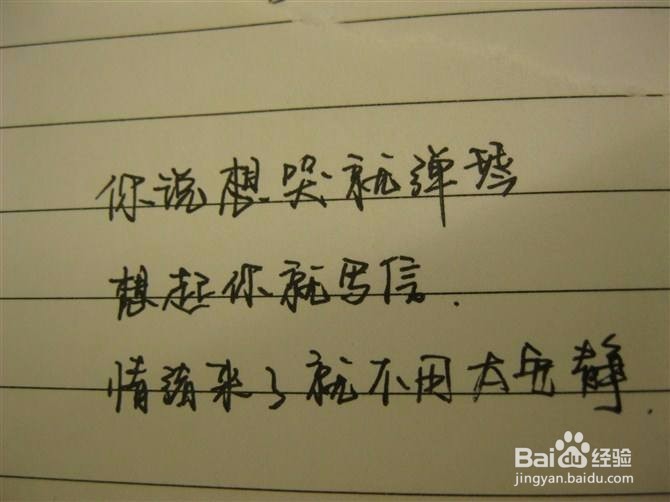 你说想哭就弹琴
想起你就写信.
情绪来了就不用太安静.
Baidu 经验
jingyan.baidu.com